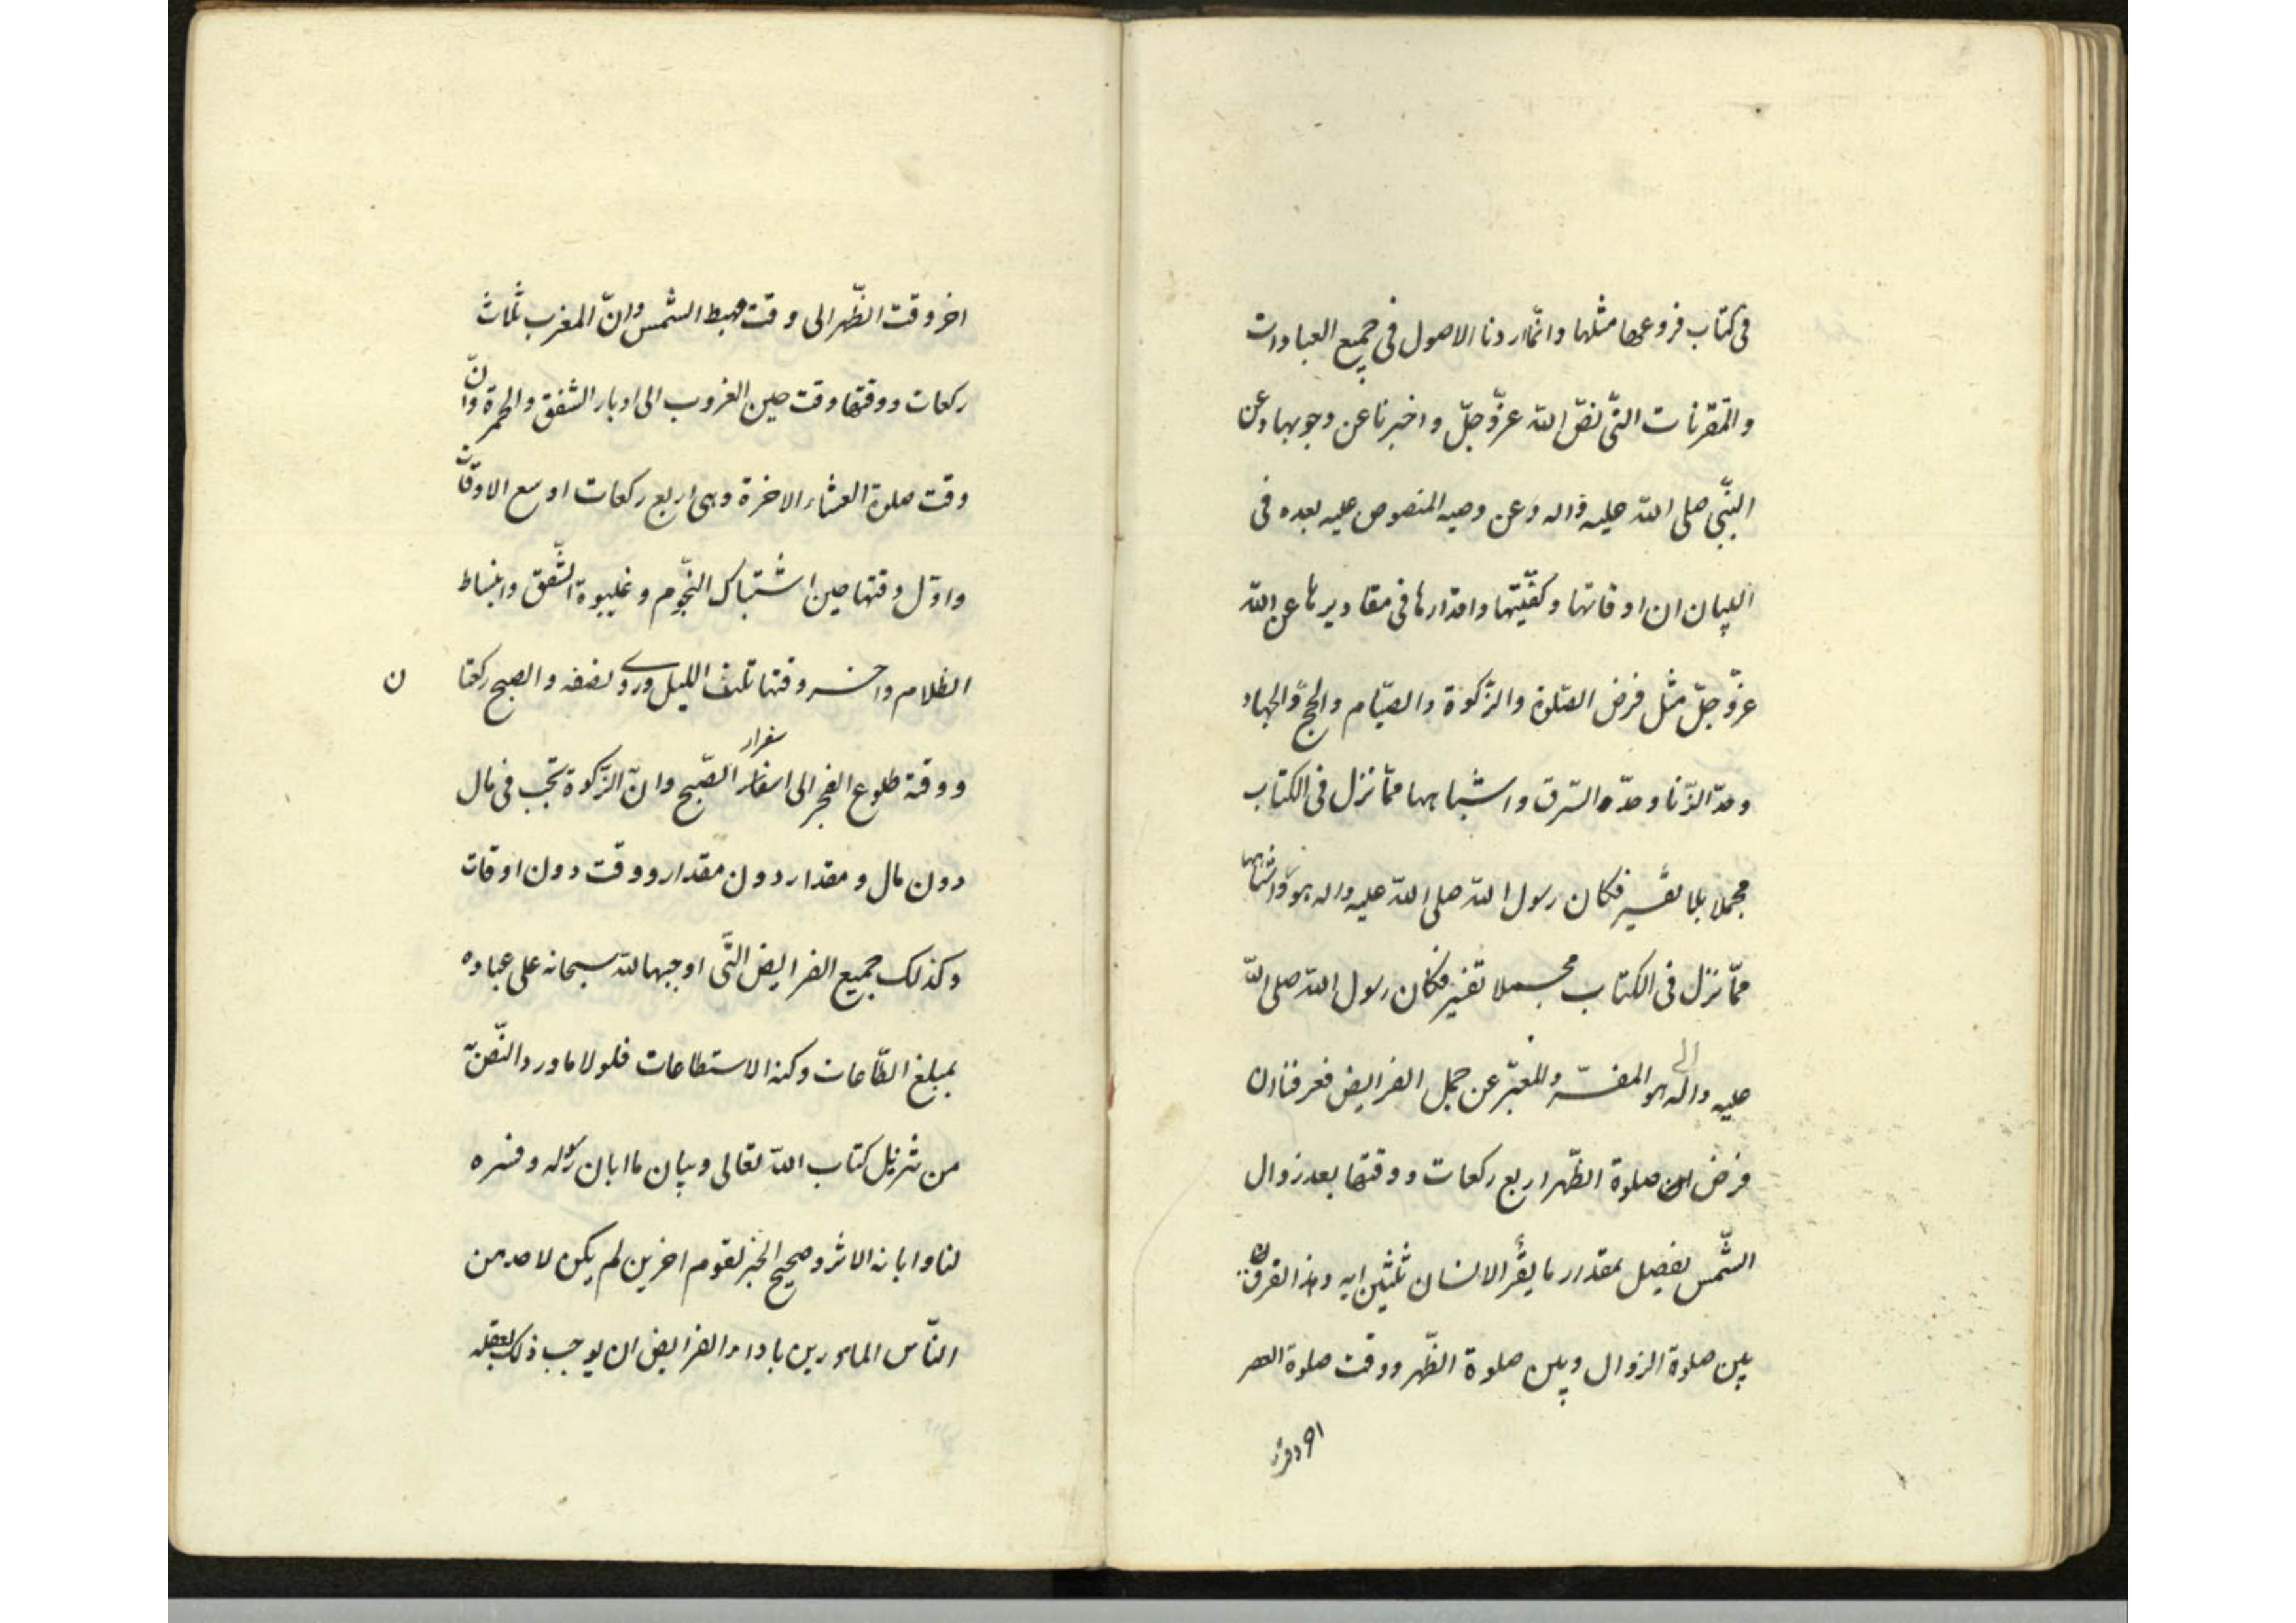 فى كتاب فروعها مثلها وانّما اردنا الاصول فى جميع العبادات
والمتقرنات التّى نصّ اللّه عزّوجلّ واخبرنا عن وجوبها وعن
النّبى صلى اللّه عليه واله وعن وصيه المنصوص عليه بعده فى
البيان ان اوقاتها وكفيّتها واقدارها فى مقاديرها عن اللّه
عزّوجلّ مثل فرض الصّلوة والزّكوة والصيّام والحج والجهاد
وحدّ الزّنا وحدّ السّرق واشباهها ممّا نزل فى الكتاب
مجملا بلا تفسير فكان رسول اللّه صلى اللّه عليه واله هو واشباهها
ممّا نزل فى الكتاب مجملا تفسير فكان رسول اللّه صلى اللّه
عليه واله هو المفسّر والمعبّر عن جمل الفرايض فعرفنا ان
فرض صلوة الظّهر اربع ركعات ووقتها بعد زوال
الشّمس بفصل بمقدار ما يقرأ الانسان ثلثين ايه وهذا الفرق
بين صلوة الزوال وبين صلوة الظّهر ووقت صلوة العصر
اخر وقت
اخر وقت الظّهر الى وقت مهبط الشّمس وانّ المغرب ثلاث
ركعات ووقتها وقت حين الغروب الى ادبار الشفق والحمرة وانّ
وقت صلوة العشاء الاخرة وهى اربع ركعات اوسع الاوقات
واوّل وقتها حين اشتباك النّجوم وغيبوبة الشّفق وانبساط
الظلام واخر وقتها ثلث الليل وروى نصفه والصبح ركعتان
ووقته طلوع الفجر الى اسفرار الصّبح وانّ الزّكوة تجب فى مال
دون مال ومقدار دون مقدار ووقت دون اوقات
وكذلك جميع الفرايض التّى اوجبها اللّه سبحانه على عباده
بمبلغ الطّاعات وكنه الاستطاعات فلولا ما ورد النّص به
من تنزيل كتاب اللّه تعالى وبيان ما ابان رسوله وفسره
لنا وابانه الاثر وصحيح الخبر لقوم اخرين لم يكن لاحد من
النّاس المامورين باداء الفرايض ان يوجب ذلك بعقله